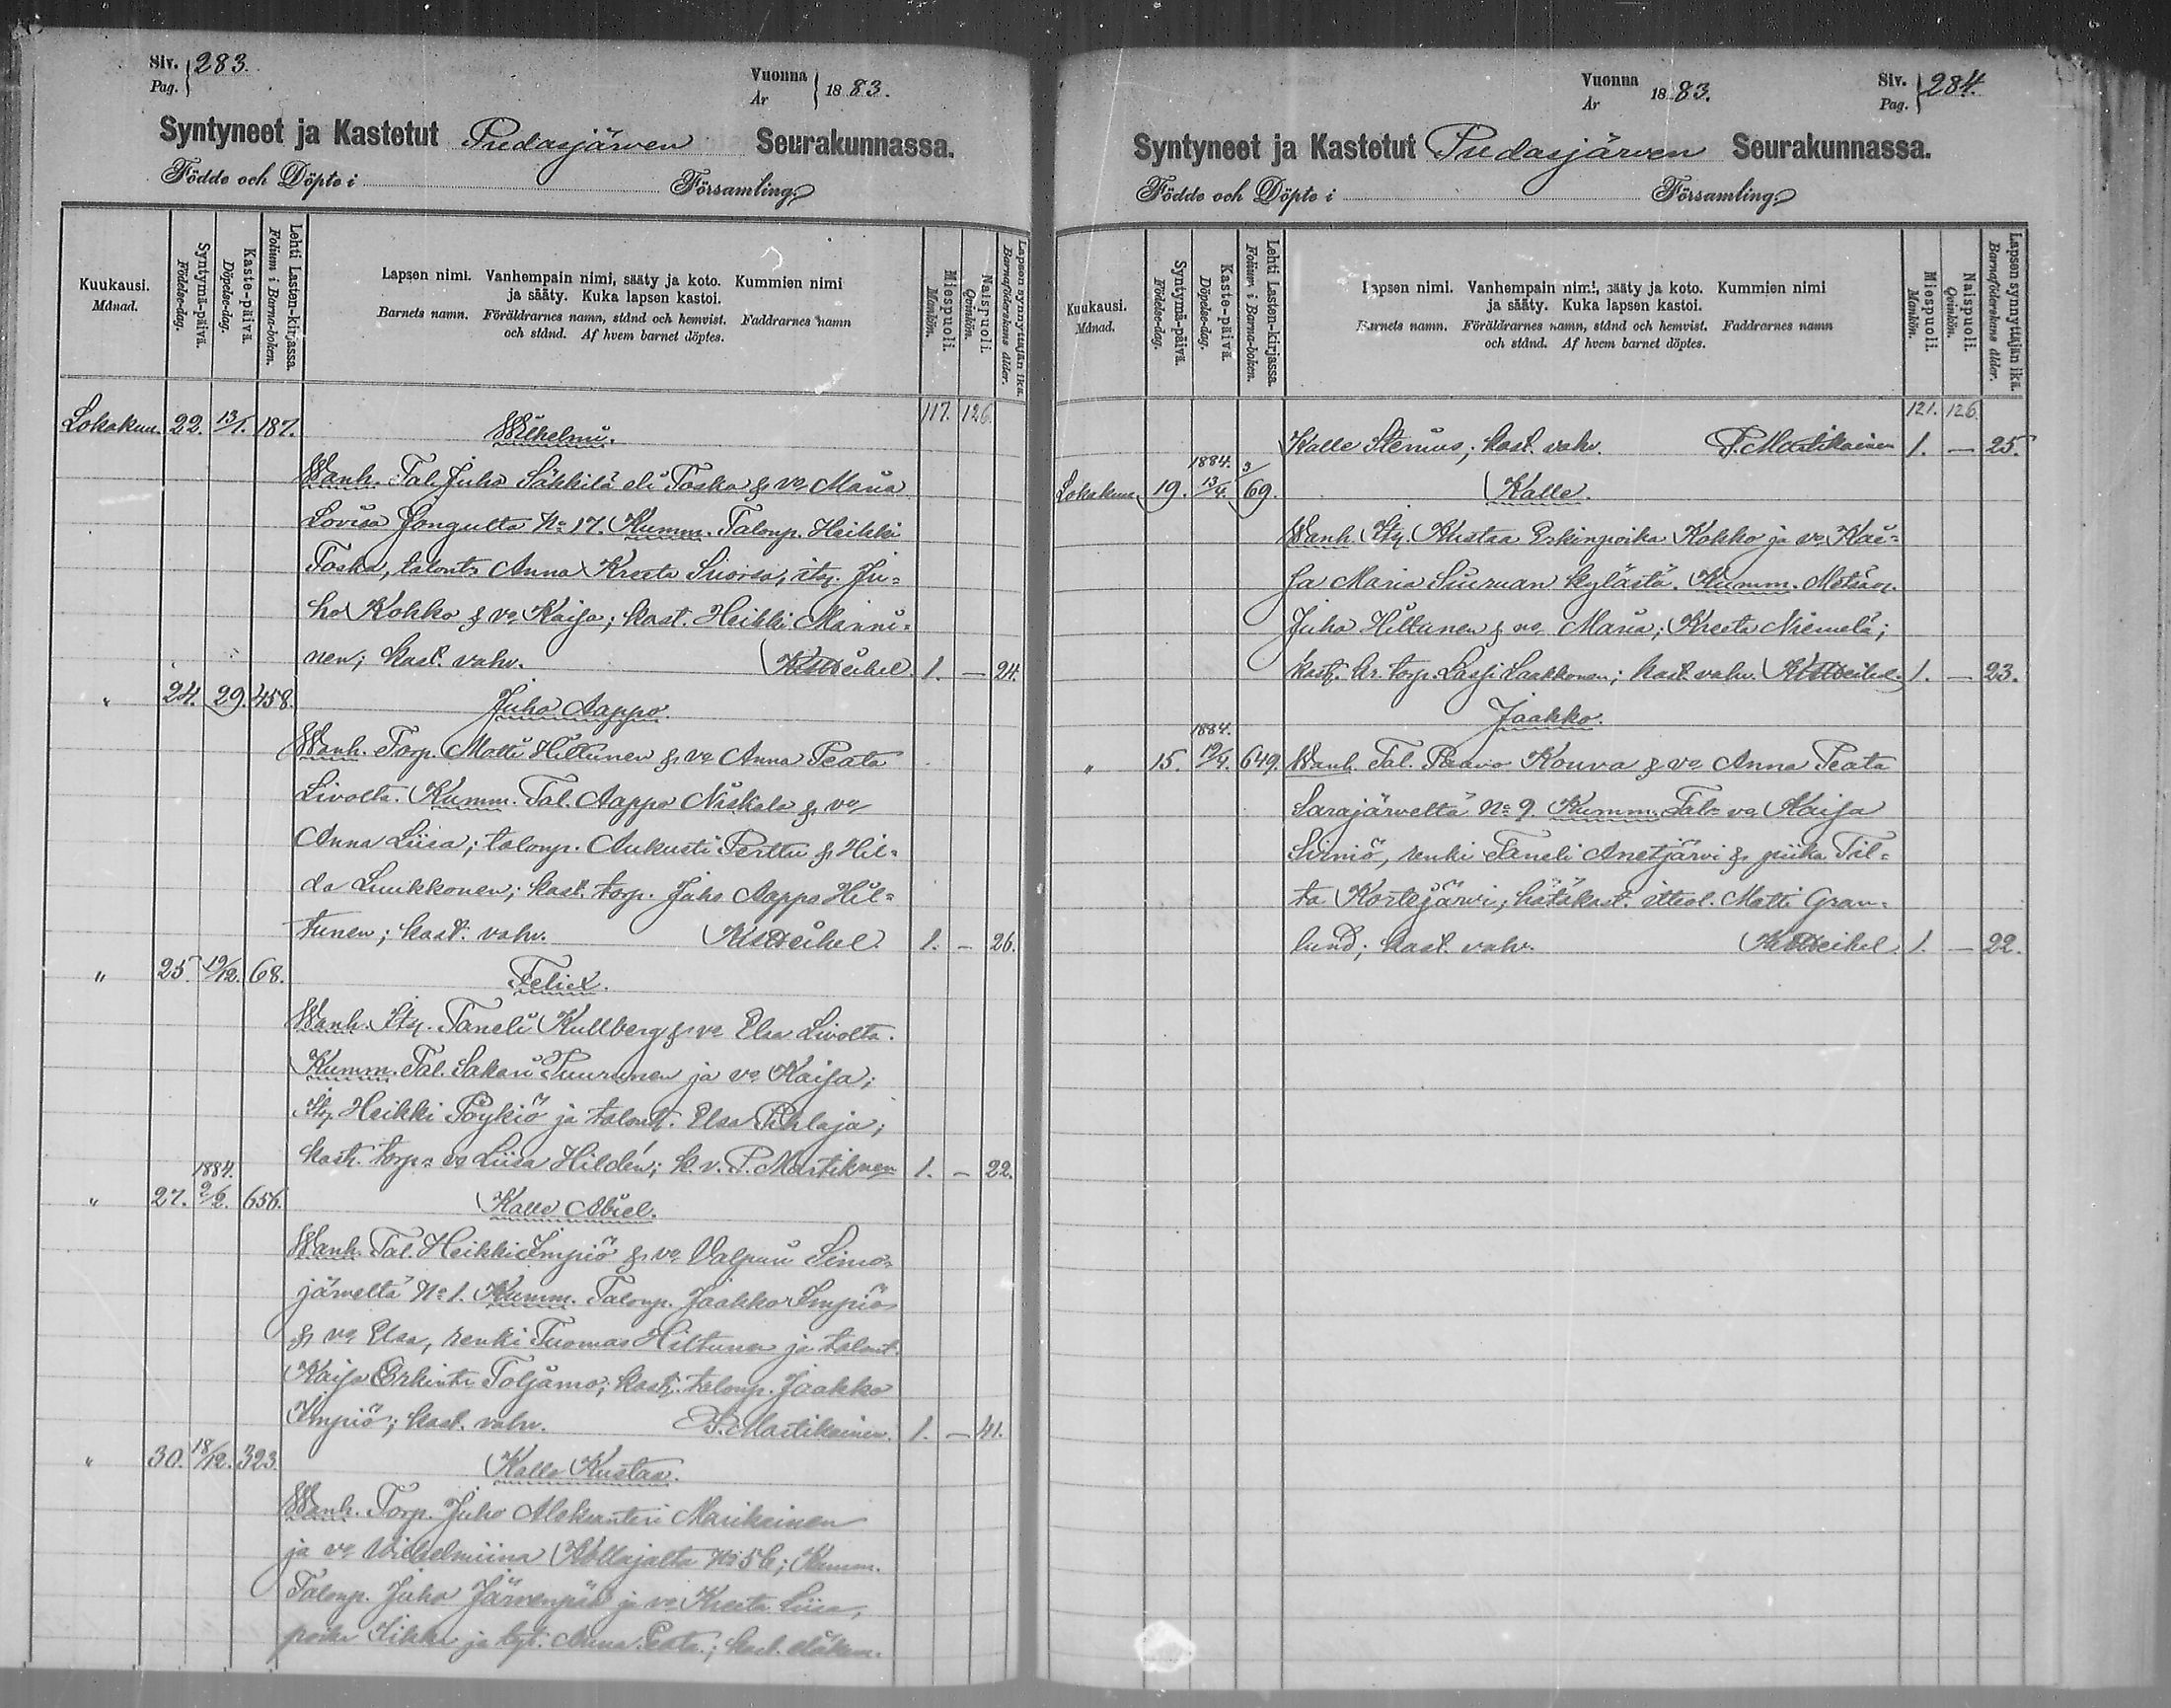 Siv. 283.
Pag.
Vuonna
År 1883.
Syntyneet ja Kastetut Pudasjärven Seurakunnassa.
Födde och Döpte i Församling.
Kuukausi.
Månad.
Syntymä-päivä.
Födelse-dag.
Kaste-päivä.
Döpelse-dag.
Lehti Lasten-kirjassa.
Folium i Barna-boken.
Lapsen nimi. Vanhempain nimi, sääty ja koto. Kummien nimi
ja sääty. Kuka lapsen kastoi.
Barnets namn. Föräldrarnes namn, stånd och hemvist. Faddrarnes namn
och stånd. Af hvem barnet döptes.
Miespuoli.
Mankön.
Naispuoli.
Qvinkön.
Lapsen synnyttäjän ikä.
Barnaföderskans ålder.
117. 126.
Lokakuu. 22. 13/1. 187. Wilhelmi.
Wanh. Tal. Juho Säkkilä eli Toska & vo Maria
Lovisa Jongulta No 17. Kumm. Talonp. Heikki
Toska, talont. Anna Kreeta Suorsa, its. Ju-
ho Kokko & vo Kaisa; kast. Heikki Manni-
nen; kast. vahv. 1. — 24.
" 24. 29. 458. Juho Aappo.
Wanh. Torp. Matti Hiltunen & vo Anna Peata
Livolta. Kumm. Tal. Aappo Niskala & vo
Anna Liisa; talonp. Aukusti Perttu & Hil-
da Luukkonen; kast. torp. Juho Aappo Hil-
tunen; kast. vahv. 1. — 26.
" 25. 19/12. 68. Felix.
Wanh. Its. Taneli Kullberg & vo Elsa Livolta.
Kumm. Tal. Sakari Puurunen ja vo Kaisa;
Its. Heikki Pöykiö ja talont. Elsa Pihlaja;
kast. torp. vo Liisa Hildén; k. v. P. Martikainen 1. — 22.
1884.
" 27. 2/2. 656. Kalle Abiel.
Wanh. Tal. Heikki Impiö & vo Valpuri Simo-
järveltä No 1. Kumm. Talonp. Jaakko Impiö
& vo Elsa, renki Tuomas Hiltunen ja talont.
Kaisa Erkintr. Toljamo; kast. talonp. Jaakko
Impiö; kast. vahv. P. Martikainen. 1. — 41.
" 30. 18/12. 323. Kalle Kustaa.
Wanh. Torp. Juho Aleksanteri Manikainen
ja vo Wilhelmiina Kollajalta No 5 b; Kumm.
Talonp. Juho Järvenpää ja vo Kreeta Liisa,
poika Iikka ja tyt. Anna Peata; kast.
Vuonna
År 1883.
Siv. 284.
Pag.
Syntyneet ja Kastetut Pudasjärven Seurakunnassa.
Födde och Döpte i Församling.
Kuukausi.
Månad.
Syntymä-päivä.
Födelse-dag.
Kaste-päivä.
Döpelse-dag.
Lehti Lasten-kirjassa.
Folium i Barna-boken.
Lapsen nimi. Vanhempain nimi, sääty ja koto. Kummien nimi
ja sääty. Kuka lapsen kastoi.
Barnets namn. Föräldrarnes namn, stånd och hemvist. Faddrarnes namn
och stånd. Af hvem barnet döptes.
Miespuoli.
Mankön.
Naispuoli.
Qvinkön.
Lapsen synnyttäjän ikä.
Barnaföderskans ålder.
121. 126.
Kalle Stenius; kast. vahv. P. Martikainen 1. — 25.
1884.
Lokakuu. 19. 13/4. 3/69. Kalle.
Wanh. Its. Kustaa Erkinpoika Kokko ja vo Kai-
sa Maria Siuruan kylästä. Kumm. Metsäv.
Juho Hiltunen & vo Maria; Kreeta Niemelä;
kast. kr. torp. Lassi Laakkonen; kast. vahv. 1. — 23.
Jaakko.
1884.
" 15. 19/4. 649. Wanh. Tal. Paavo Kouva & vo Anna Peata
Sarajärveltä No 9. Kumm. Tal. vo Kaisa
Siiniö, renki Taneli Anetjärvi & piika Til-
ta Kortejärvi; hätäkast. ittesl. Matti Gran-
lund; kast. vahv. 1. — 22.